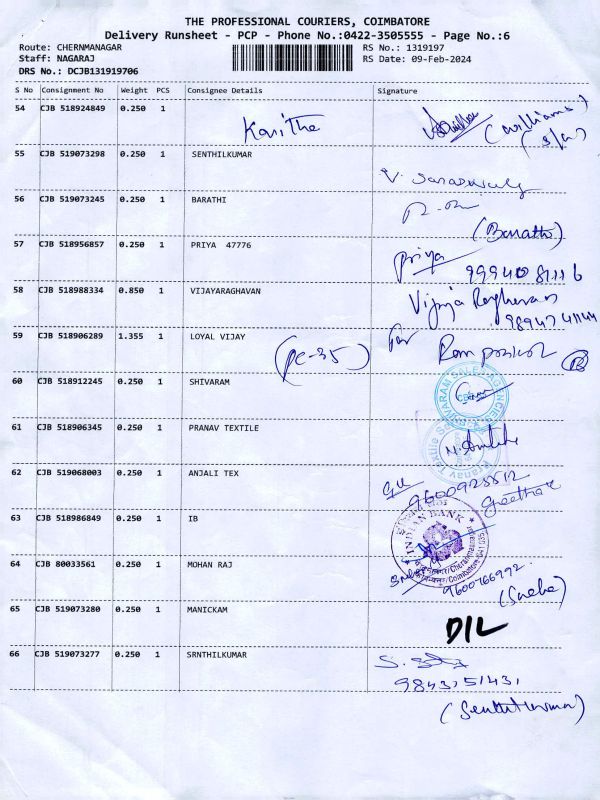 THE PROFESSIONAL COURIERS, COIMBATORE
Delivery Runsheet - PCP - Phone No.:0422-3505555 - Page No.:6
Route: CHERNMANAGAR RS No.: 1319197
Staff: NAGARAJ RS Date: 09-Feb-2024
DRS No.: DCJB131919706
S No Consignment No Weight PCS Consignee Details Signature
54 CJB 518924849 0.250 1 Kavitha (williams)
(s/a)
55 CJB 519073298 0.250 1 SENTHILKUMAR
V. Saraswaty
56 CJB 519073245 0.250 1 BARATHI
(Barathi)
57 CJB 518956857 0.250 1 PRIYA 47776 Priya
9994081116
58 CJB 518988334 0.850 1 VIJAYARAGHAVAN Vijaya Raghavan
9894741144
59 CJB 518906289 1.355 1 LOYAL VIJAY (PC-35) for
60 CJB 518912245 0.250 1 SHIVARAM
61 CJB 518906345 0.250 1 PRANAV TEXTILE
62 CJB 519068003 0.250 1 ANJALI TEX
Geetha
63 CJB 518986849 0.250 1 IB INDIAN BANK
64 CJB 80033561 0.250 1 MOHAN RAJ
9600766992
(Sneha)
65 CJB 519073280 0.250 1 MANICKAM D/L
66 CJB 519073277 0.250 1 SRNTHILKUMAR
9843151431
(Senthilkumar)